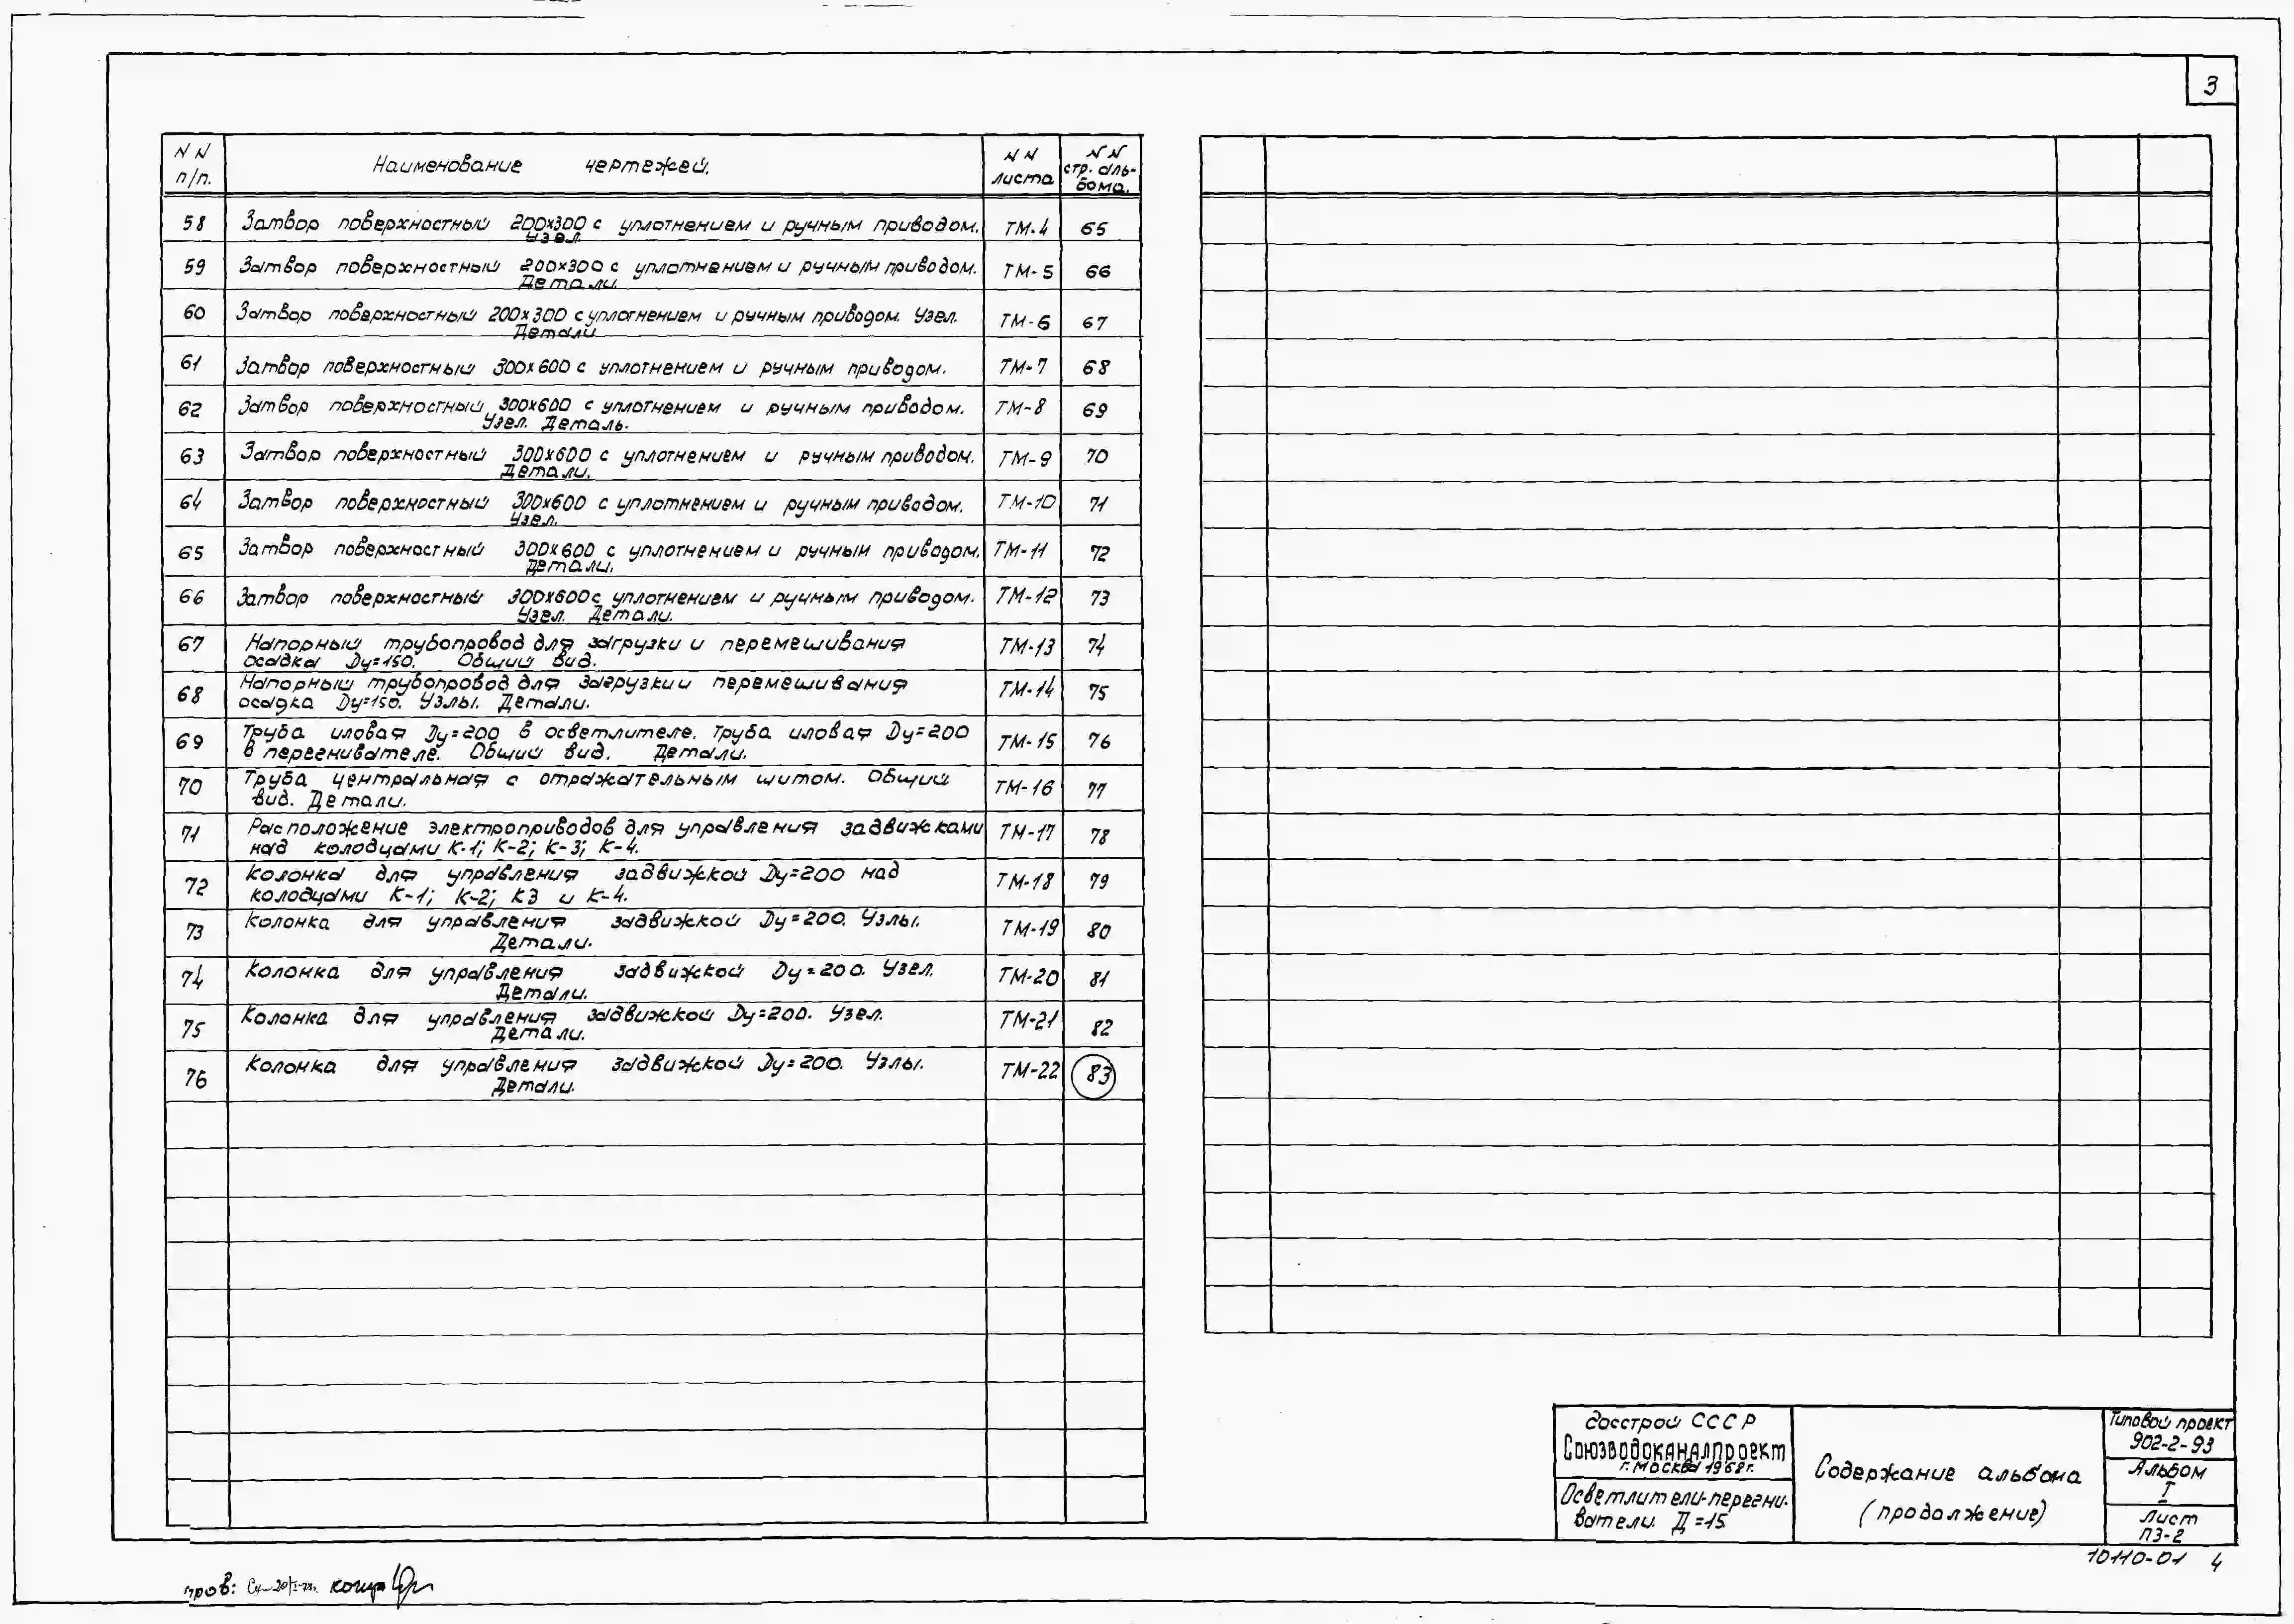 3
N N п/п. Наименование чертежей. N N листа N N стр. аль-бома.
58 Затвор поверхностный 200х300 с уплотнением и ручным приводом. ТМ-4 65
Узел.
59 Затвор поверхностный 200х300 с уплотнением и ручным приводом. ТМ-5 66
Детали.
60 Затвор поверхностный 200х300 с уплотнением и ручным приводом. Узел. ТМ-6 67
Детали
61 Затвор поверхностный 300х600 с уплотнением и ручным приводом. ТМ-7 68
62 Затвор поверхностный 300х600 с уплотнением и ручным приводом. ТМ-8 69
Узел. Деталь.
63 Затвор поверхностный 300х600 с уплотнением и ручным приводом. ТМ-9 70
Детали.
64 Затвор поверхностный 300х600 с уплотнением и ручным приводом. ТМ-10 71
Узел.
65 Затвор поверхностный 300х600 с уплотнением и ручным приводом. ТМ-11 72
Детали.
66 Затвор поверхностный 300х600 с уплотнением и ручным приводом. ТМ-12 73
Узел. Детали.
67 Напорный трубопровод для загрузки и перемешивания ТМ-13 74
осадка Dу=150. Общий вид.
68 Напорный трубопровод для загрузки и перемешивания ТМ-14 75
осадка Dу=150. Узлы. Детали.
69 Труба иловая Dу=200 в осветлителе. Труба иловая Dу=200 ТМ-15 76
в перегнивателе. Общий вид. Детали.
70 Труба центральная с отражательным щитом. Общий ТМ-16 77
вид. Детали.
71 Расположение электроприводов для управления задвижками ТМ-17 78
над колодцами К-1; К-2; К-3; К-4.
72 Колонка для управления задвижкой Dу=200 над ТМ-18 79
колодцами К-1; К-2; К3 и К-4.
73 Колонка для управления задвижкой Dу=200. Узлы. ТМ-19 80
Детали.
74 Колонка для управления задвижкой Dу=200. Узел. ТМ-20 81
Детали.
75 Колонка для управления задвижкой Dу=200. Узел. ТМ-21 82
Детали.
76 Колонка для управления задвижкой Dу=200. Узлы. ТМ-22 83
Детали.
Госстрой СССР
Союзводоканалпроект
г. Москва 1968г.
Осветлители-перегни-
ватели. Д=15.
Содержание альбома
(продолжение)
Типовой проект
902-2-93
Альбом
I
Лист
ПЗ-2
10110-01 4
пров: копир